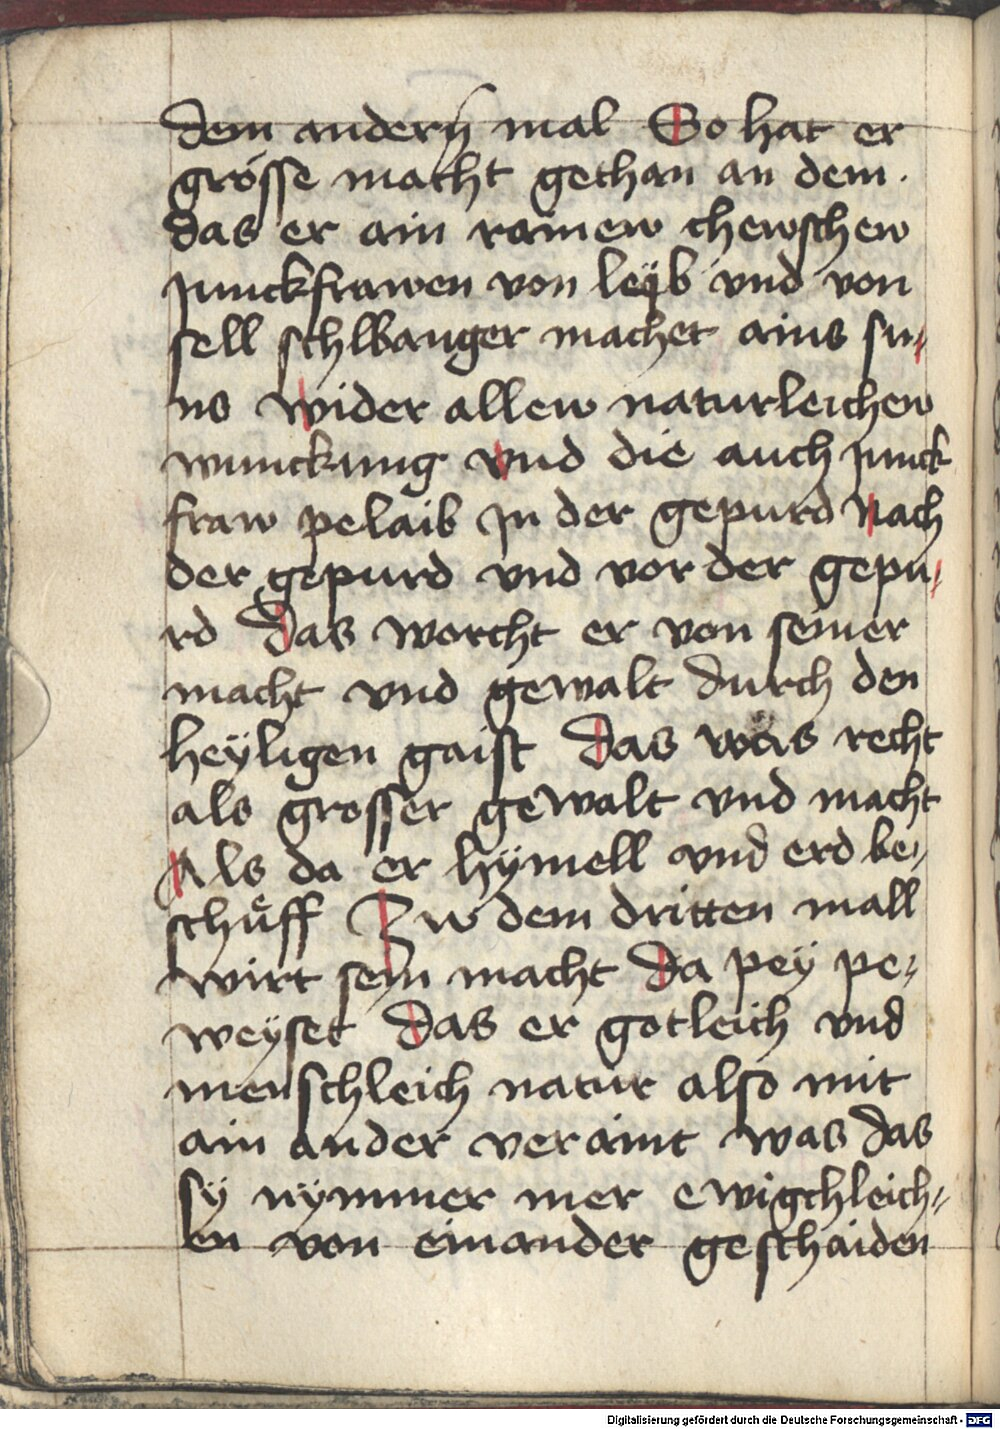 dem andern mal So hat er
grösse macht gethan an dem .
das er ain rainew chewschew
junckfrawen von leyb vnd von
sell schwanger machet ains su-
ns wider allew naturleichew
wunckung vnd die auch junck
fraw pelaib jn der gepurd Nach
der gepurd vnd vor der gepu-
rd das worcht er von seiner
macht vnd gewalt durch den
heÿligen gaist Das was recht
als grosser gewalt vnd macht
Als da er hÿmell vnd erd be-
schůff Zw dem dritten mall
wirt sein macht da peÿ pe-
weÿset das er gotleich vnd
menschleich natur also mit
ain ander veraint was das
sÿ nÿmmer mer ewigchleich-
en von einander geschaiden
Digitalisierung gefördert durch die Deutsche Forschungsgemeinschaft - DFG